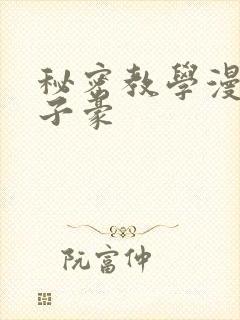 秘密教學漫
子豪
阮富仲